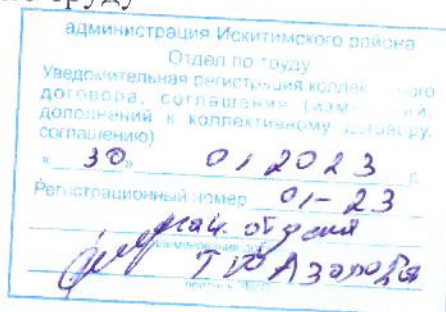 труду
администрация Искитимского района
Отдел по труду
Уведомительная регистрация коллективного
договора, соглашения (изменений,
дополнений к коллективному договору,
соглашению)
« 30 » 01 2023 г.
Регистрационный номер 01-23
нач. отдела
наименование